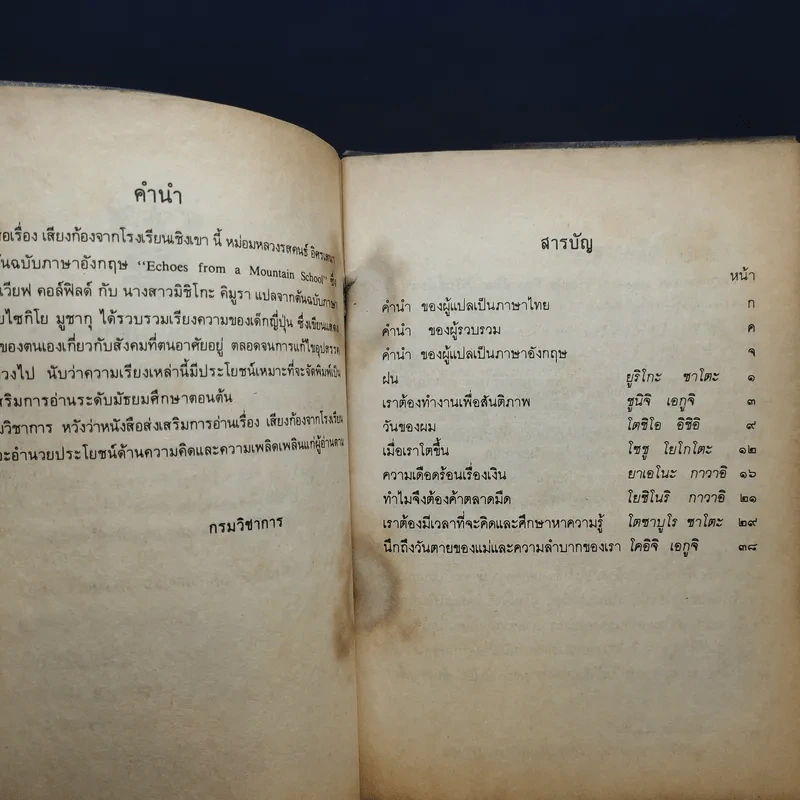 คำนำ
เรื่อง เสียงก้องจากโรงเรียนเชิงเขา นี้ หม่อมหลวงรสคนธ์
ฉบับภาษาอังกฤษ “Echoes from a Mountain School” ซึ่ง
เวียฟ คอล์ฟิลด์ กับ นางสาวมิชิโกะ คิมูรา แปลจากต้นฉบับภาษา
ไซกิโย มูชากุ ได้รวบรวมเรียงความของเด็กญี่ปุ่น ซึ่งเขียนแสดง
ของตนเองเกี่ยวกับสังคมที่ตนอาศัยอยู่ ตลอดจนการแก้ไขอุปสรรค
ไป นับว่าความเรียงเหล่านี้มีประโยชน์เหมาะที่จะจัดพิมพ์เป็น
เสริมการอ่านระดับมัธยมศึกษาตอนต้น
วิชาการ หวังว่าหนังสือส่งเสริมการอ่านเรื่อง เสียงก้องจากโรงเรียน
อำนวยประโยชน์ด้านความคิดและความเพลิดเพลินแก่ผู้อ่านตาม
กรมวิชาการ
สารบัญ
หน้า
คำนำ ของผู้แปลเป็นภาษาไทย ก
คำนำ ของผู้รวบรวม ค
คำนำ ของผู้แปลเป็นภาษาอังกฤษ จ
ฝน ยูริโกะ ซาโตะ ๑
เราต้องทำงานเพื่อสันติภาพ ชูนิจิ เอกูจิ ๓
วันของผม โตชิโอ อิชิอิ ๙
เมื่อเราโตขึ้น โซชู โยโกโตะ ๑๒
ความเดือดร้อนเรื่องเงิน ยาเอโนะ กาวาอิ ๑๖
ทำไมจึงต้องค้าตลาดมืด โยชิโนริ กาวาอิ ๒๑
เราต้องมีเวลาที่จะคิดและศึกษาหาความรู้ โตซาบูโร ซาโตะ ๒๙
นึกถึงวันตายของแม่และความลำบากของเรา โคอิจิ เอกูจิ ๓๘